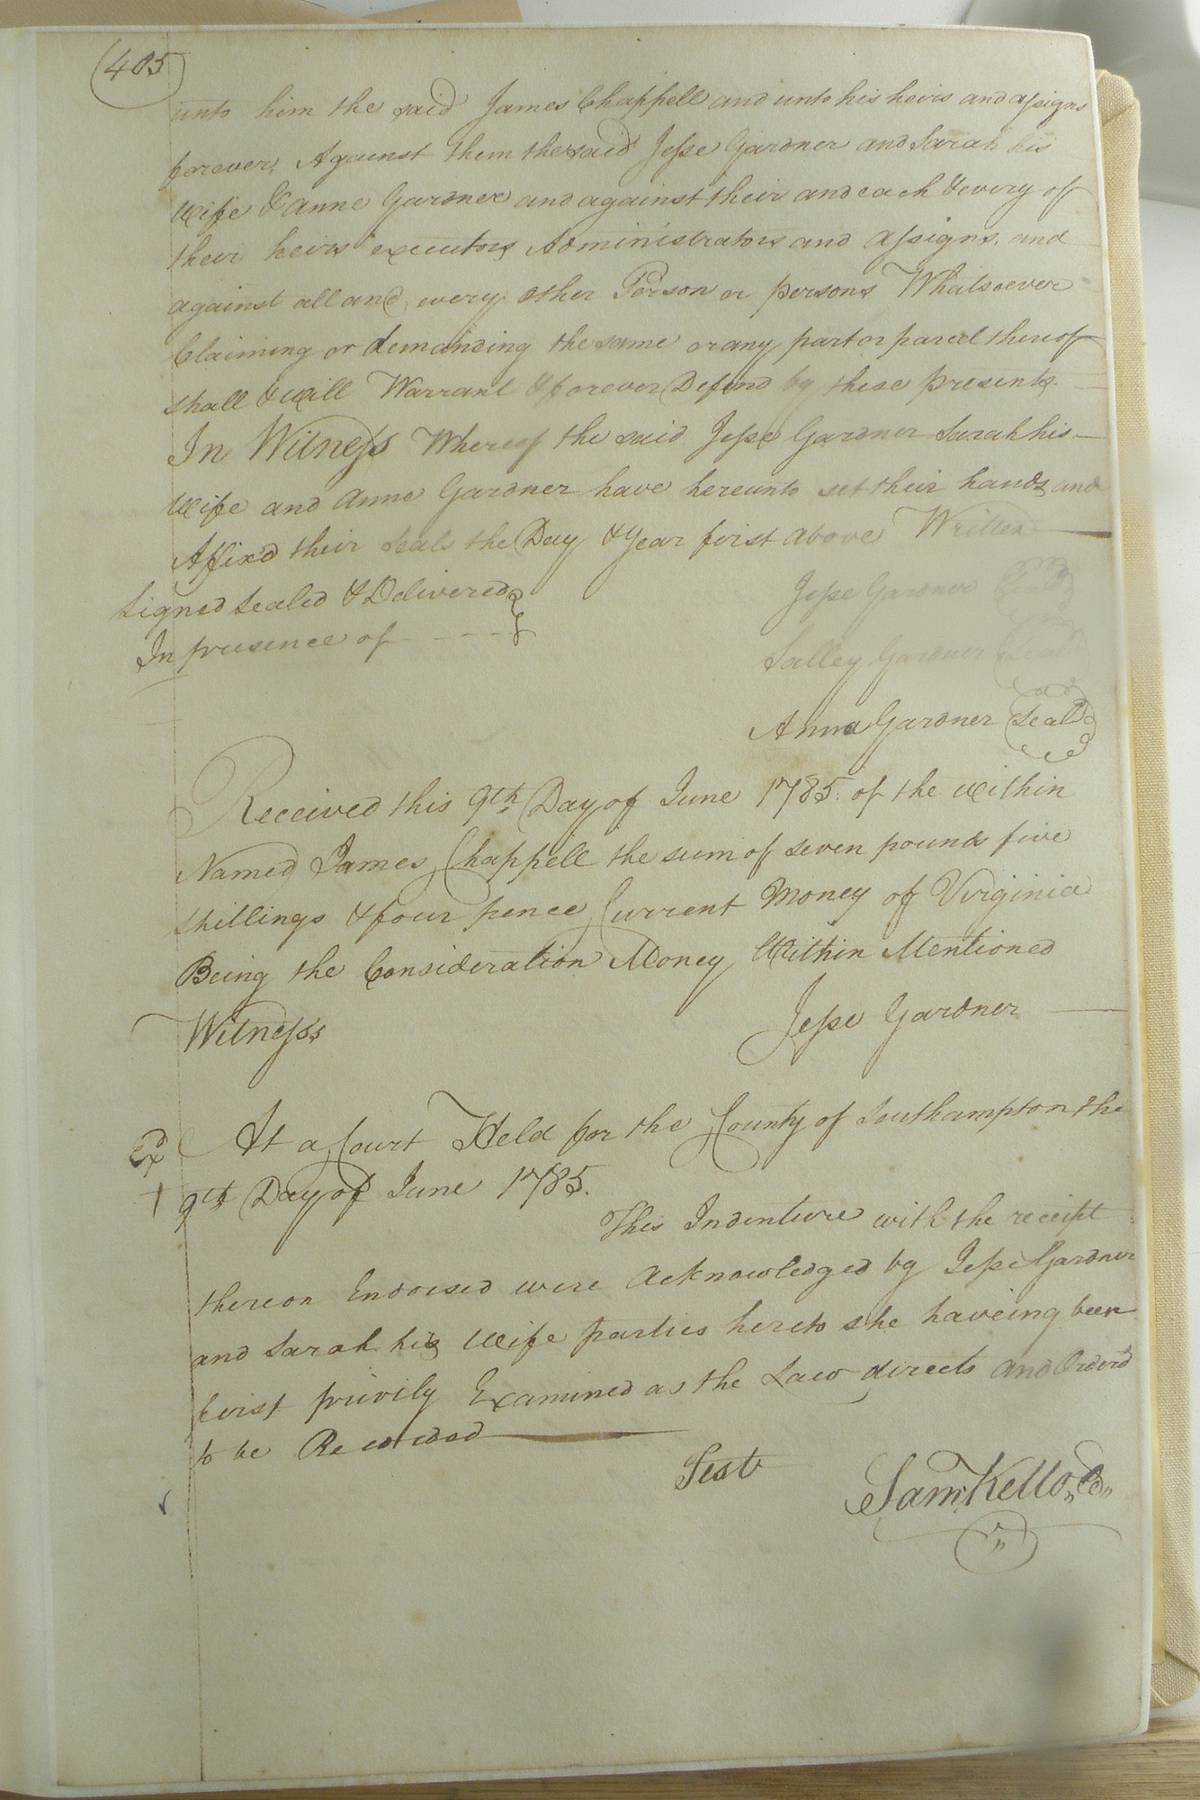 (405)
unto him the said James Chappell and unto his heirs and assigns
forever, Against them the said Jesse Gardner and Sarah his
Wife & Anne Gardner and against their and each & every of
their heirs executors Administrators and Assigns, and
against all and every other Person or persons Whatsoever
Claiming or demanding the same or any part or parcel thereof
shall & will Warrant & forever Defend by these presents.
In Witness Whereof the said Jesse Gardner Sarah his
Wife and Anne Gardner have hereunto set their hands and
Affix'd their seals the Day & Year first above Written
Signed Sealed & Delivered
In presence of
Jesse Gardner Seal
Salley Gardner Seal
Anna Gardner Seal
Received this 9th Day of June 1785. of the within
Named James Chappell the sum of seven pounds five
shillings & four pence Current Money of Virginia
Being the Consideration Money Within Mentioned
Witness
Jesse Gardner
At a Court Held for the County of Southampton the
9th Day of June 1785.
This Indenture with the receipt
thereon Endorsed were Acknowledged by Jesse Gardner
and Sarah his Wife parties hereto she haveing been
first privily Examined as the Law directs and Order'd
to be Recorded
Test
Saml Kello, Co,,